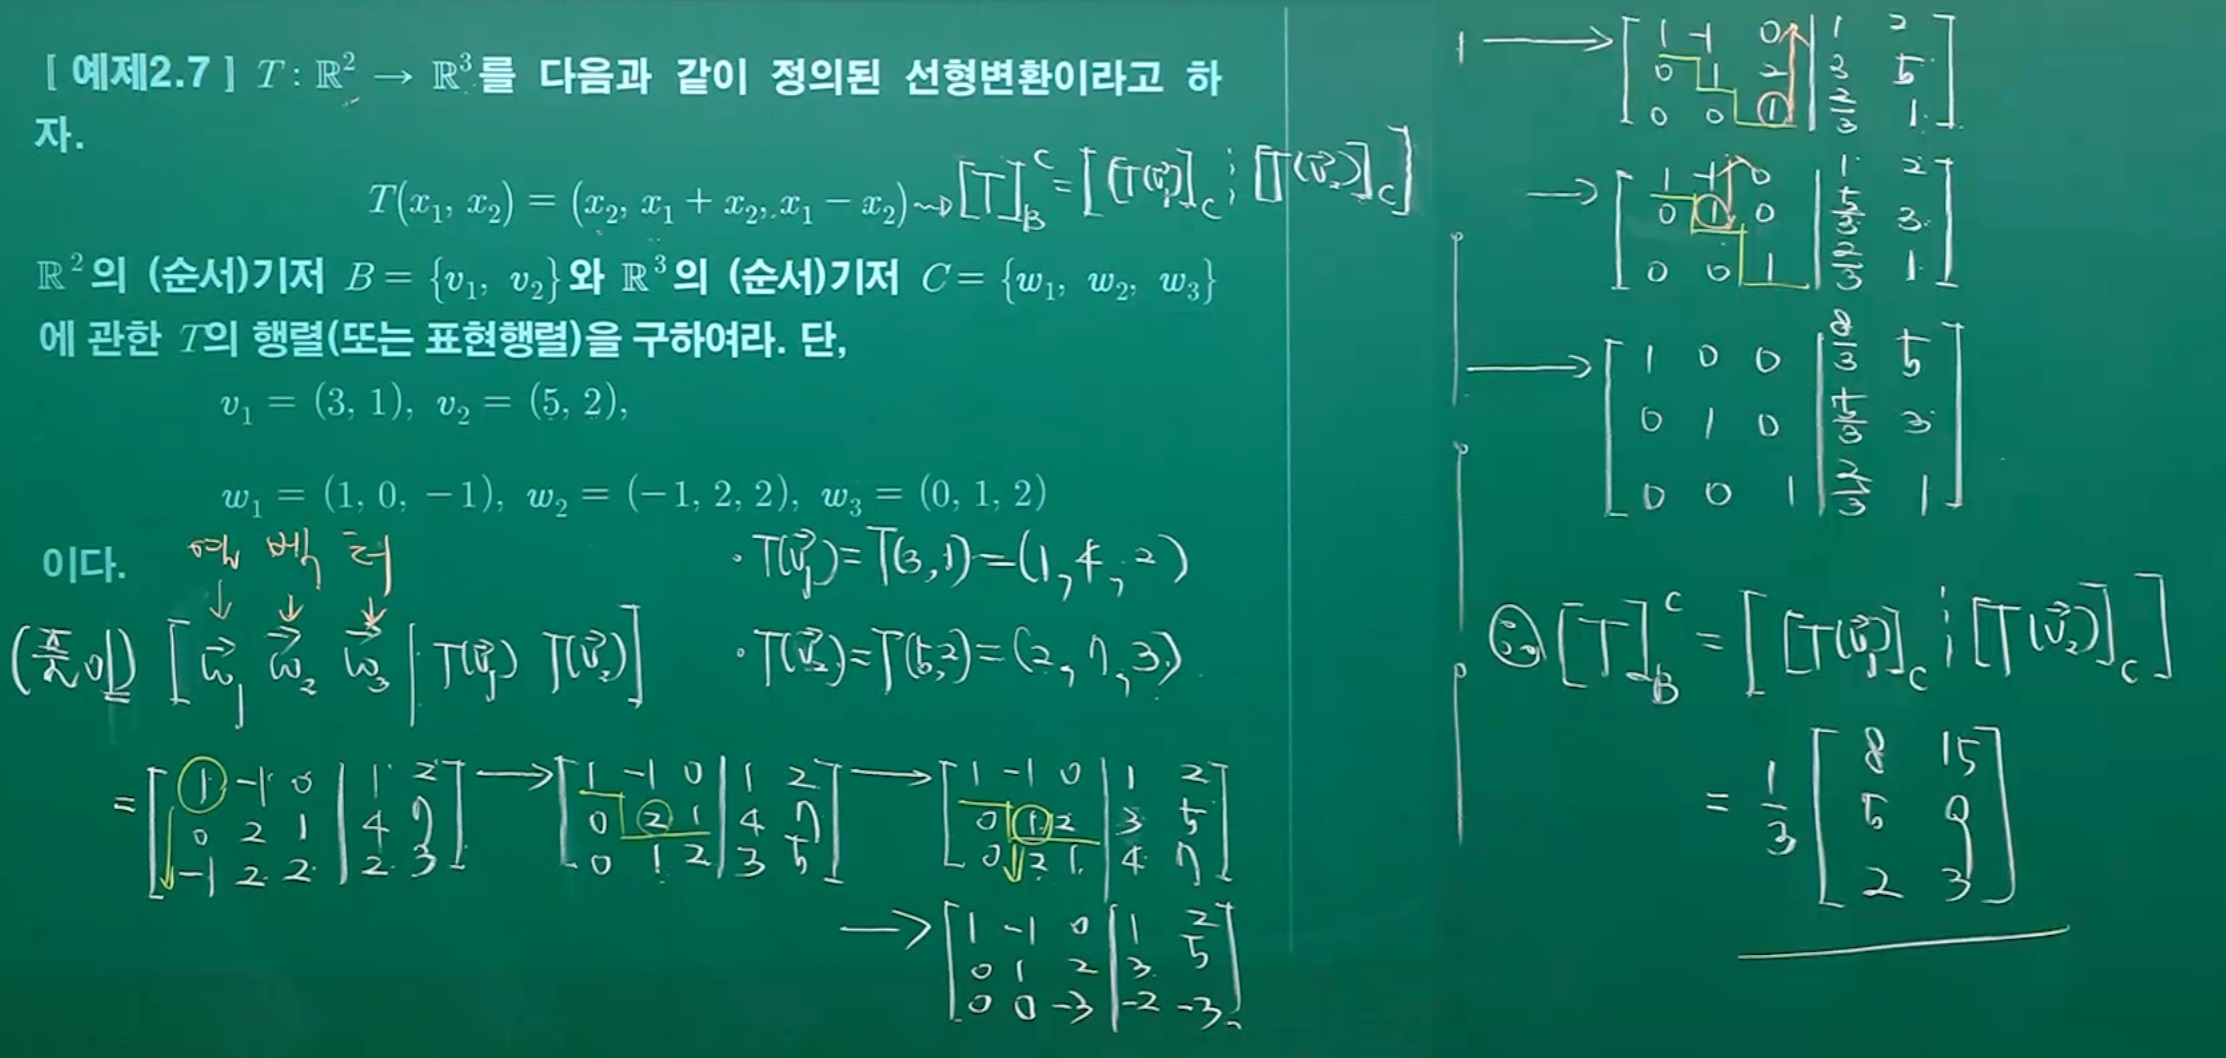 [ 예제2.7 ] T : ℝ² → ℝ³를 다음과 같이 정의된 선형변환이라고 하
자.
T(x₁, x₂) = (x₂, x₁ + x₂, x₁ − x₂) ⇝ [T]_B^C = [ [T(v⃗₁)]_C ⋮ [T(v⃗₂)]_C ]
ℝ²의 (순서)기저 B = {v₁, v₂}와 ℝ³의 (순서)기저 C = {w₁, w₂, w₃}
에 관한 T의 행렬(또는 표현행렬)을 구하여라. 단,
v₁ = (3, 1), v₂ = (5, 2),
w₁ = (1, 0, −1), w₂ = (−1, 2, 2), w₃ = (0, 1, 2)
이다.
열 벡 터
↓ ↓ ↓
(풀이) [ w⃗₁ w⃗₂ w⃗₃ | T(v⃗₁) T(v⃗₂) ]
· T(v⃗₁) = T(3, 1) = (1, 4, 2)
· T(v⃗₂) = T(5, 2) = (2, 7, 3)
= [ 1 −1 0 | 1 2
0 2 1 | 4 7
−1 2 2 | 2 3 ]
→ [ 1 −1 0 | 1 2
0 2 1 | 4 7
0 1 2 | 3 5 ]
→ [ 1 −1 0 | 1 2
0 1 2 | 3 5
0 2 1 | 4 7 ]
→ [ 1 −1 0 | 1 2
0 1 2 | 3 5
0 0 −3 | −2 −3 ]
→ [ 1 −1 0 | 1 2
0 1 2 | 3 5
0 0 1 | 2/3 1 ]
→ [ 1 −1 0 | 1 2
0 1 0 | 5/3 3
0 0 1 | 2/3 1 ]
→ [ 1 0 0 | 8/3 5
0 1 0 | 5/3 3
0 0 1 | 2/3 1 ]
∴ [T]_B^C = [ [T(v⃗₁)]_C ⋮ [T(v⃗₂)]_C ]
= 1/3 [ 8 15
5 9
2 3 ]